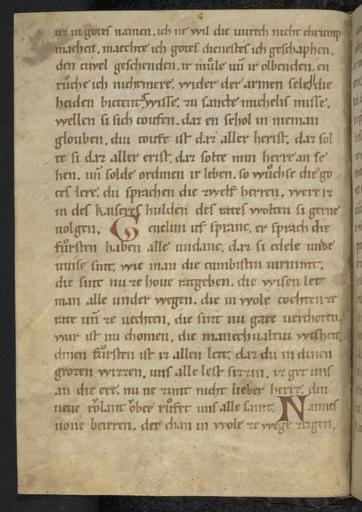 ur in gotes namen. ich ne wil die uurch nicht
machen. maechte ich gotes dienestes ich geschaphen.
den tiuel geschenden. ir mule uñ ir olbenden. en
ruͦche ich nicht mere. wider der armen sele. die
heiden bitent wisse. zu sancte michelis misse.
wellen si sich toufen. dar en schol in nieman
glouben. diu toufe ist daz aller herist. daz sol
te si daz aller erist. daz solte min herre an se
hen. uñ solde ordinen ir leben. so wuͦchse die go
tes lere. du sprachen die zwelf herren. were iz
in des kaiseres hulden des rates wolten si gerne
uolgen. Genelun uf spranc. er sprach die
fuͦrsten haben alle undanc. daz si edele unde
wise sint. wie man die tumbisten
die sint nu ze houe ratgeben. die wisen let
man alle under wegen. die in wole tochten ze
rate uñ ze uechten. die sint nu gare verchoren.
war ist nu chomen. die manecualtiu wisheit.
dinen fuͦrsten ist iz allen leit. daz du in dinen
grozen wizzen. uns alle lest sizzen. iz get uns
an die ere. nu ne zimt nicht lieber herre. din
neue rolant ober ruͦfet uns alle samt. Naimes
uone beieren. der chan in wole ze wege zeigen.